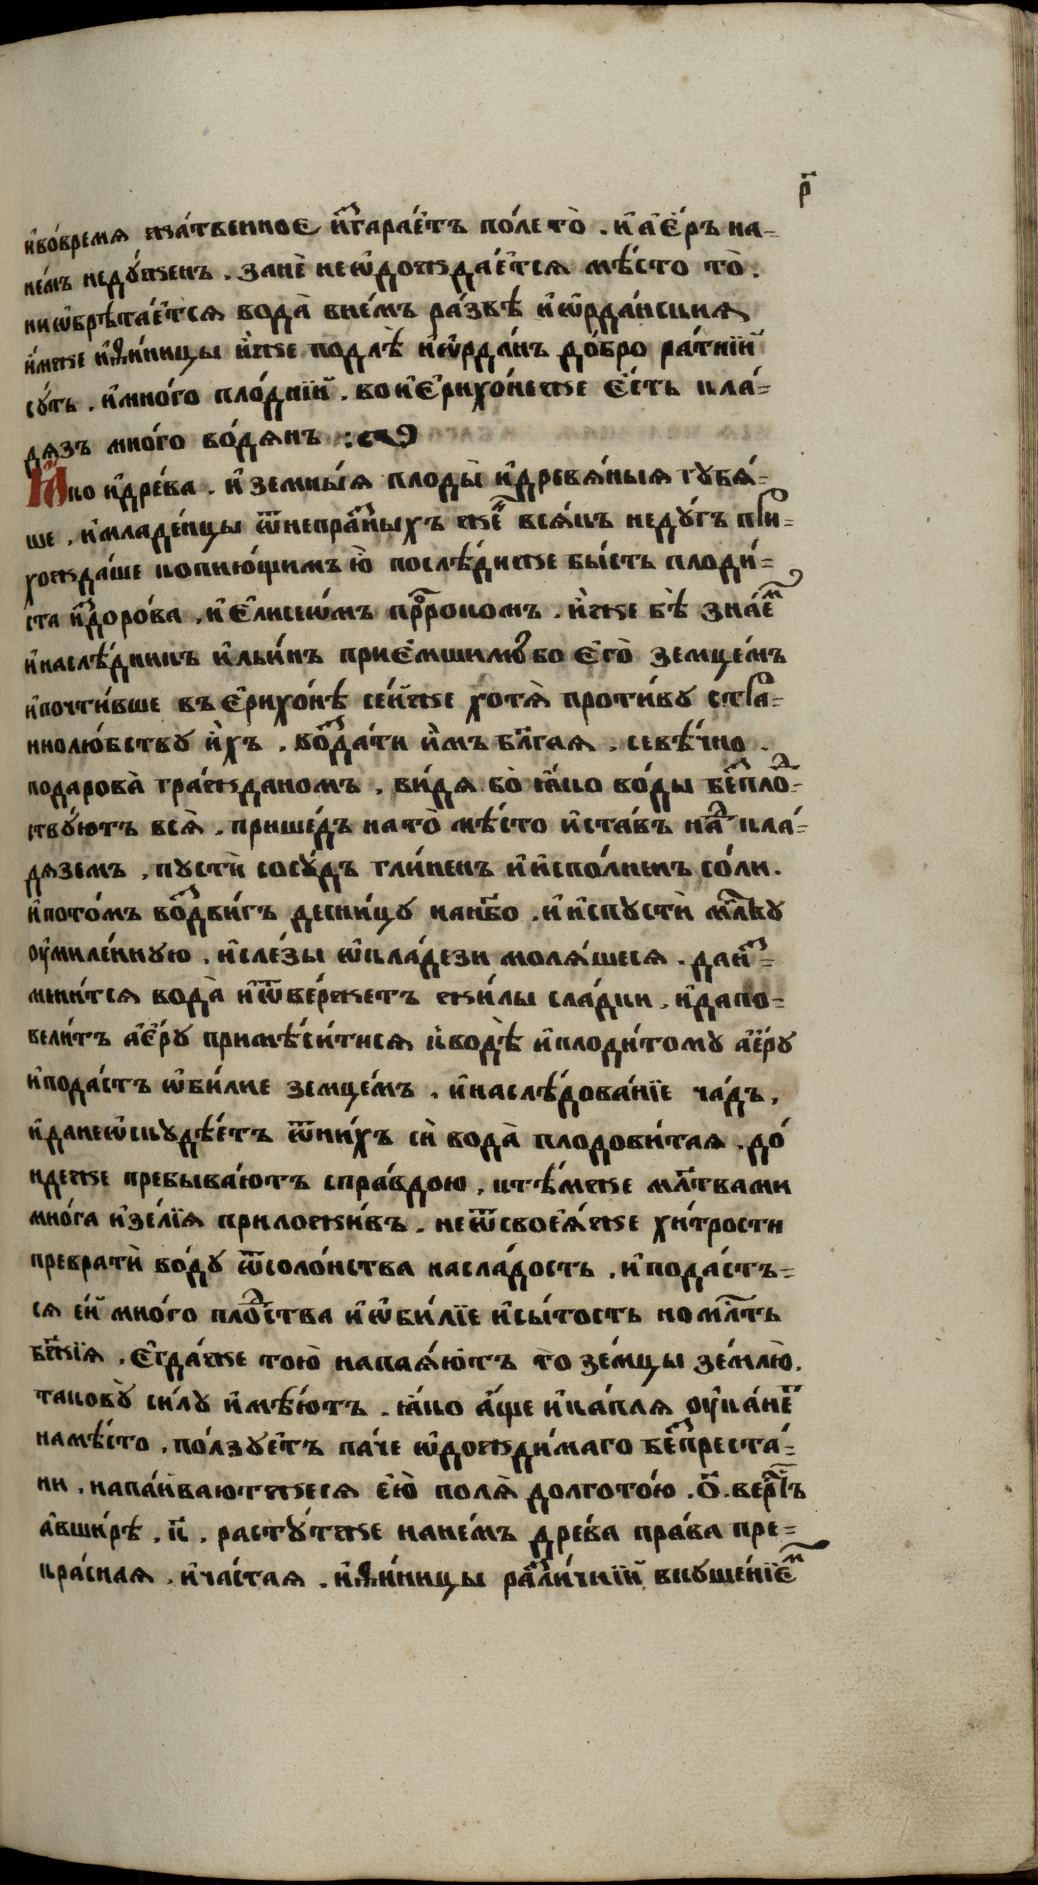 р҃
и҆во́время жа́твенноє и҆згара́е҆тъ по́ле то̀ . и҆ а҆є́ръ на=
не́мъ неду́женъ . занѐ не ѡ҆дожда́е҆тся мѣ́сто то̀ .
ни ѡ҆брѣта́е҆тся вода̀ в не́мъ ра́звѣ и҆ѡ҆рда́нския
и҆́мже и҆ ѳи́ницы и҆̀же подлѣ̀ и҆ѡ҆рда́нъ до́бро ра́тнїи
су́ть . и҆мно́го пло́днїи . во и҆є҆рихо́не же є҆́сть кла́=
дязъ мно́го во́дянъ :
Ꙗ҆́ко и҆дре́ва . и҆ земны́я плоды̀ и҆древѧ́ныя губѧ́=
ше . и҆младе́нцы ѿнепра́зныхъ же҆ всѧ́къ неду́гъ при=
хожда́ше ко пию́щимъ ю҆̀ послѣ́ди же бы́сть плоди́=
ста и҆здоро́ва . и҆ є҆лисѣѡмъ прⷪ҇рокомъ . и҆́же бѣ̀ зна́емъ
и҆наслѣ́дникъ и҆льи́нъ прие́мшимъ бо є҆го̀ земце́мъ
и҆почти́вше въ є҆рихо́нѣ се́й же хотѧ̀ проти́ву стра=
ннолю́бству и҆́хъ . возда́ти и҆̀мъ бл҃гая . се вѣ́чно .
подарова̀ гра́жданомъ . ви́дя бо̀ ꙗ҆́ко во́ды безпло=
ству́ютъ вся̀ . прише́дъ на то̀ мѣ́сто и҆ста́въ надъ кла́=
дяземъ . пустѝ сосу́дъ гли́ненъ и҆ и҆спо́лненъ со́ли .
и҆пото́мъ воздви́гъ десни́цу на нб҃о . и҆ и҆спустѝ мл҃тву
ѹ҆миле́нную . и҆сле́зы ѡ҆кла́дези молѧ́шеся . да и҆з=
мни́тся вода̀ и҆ ѿве́ржетъ жи́лы сла́дки . и҆да по=
вели́тъ а҆є́ру примѣси́тися к водѣ̀ и҆плоди́тому а҆є́ру
и҆пода́стъ ѡ҆би́лие земце́мъ . и҆наслѣ́дова́нїе ча́дъ .
и҆да не ѡ҆скудѣ́е҆тъ ѿ ни́хъ сѝ вода̀ плодови́тая . до́
ндеже пребыва́ютъ спра́вдою . и тѣ́мже мл҃твами
мно́га и҆зе́лїя приложи́въ . не ѿсвоея́же хи́трости
превратѝ во́ду ѿсоло́нства насла́дость . и҆пода́стъ=
ся е́й мно́го пло́дства и҆ ѡ҆би́лїе и҆сы́тость по мл҃ть
бж҃їя . є҆гда́же то́ю напая́ю҆тъ то̀ зе́мцы зе́млю̀ .
такову̀ си́лу и҆мѣ́ютъ . ꙗ҆́ко а҆́ще и҆ ка́пля ѹ҆ка́нетъ
намѣ́сто . по́лзуетъ па́че ѡ҆дожди́маго безпреста́=
ни . напа́иваютжеся е́ю̀ поля̀ долгото́ю . о҃ . ве́рстъ
а҆ вши́рѣ . к҃ . расту́тже нане́мъ дре́ва пра́ва пре=
кра́сная . и҆ча́стая . и҆ ѳи́ницы разли́чнїи вкуше́нїемъ